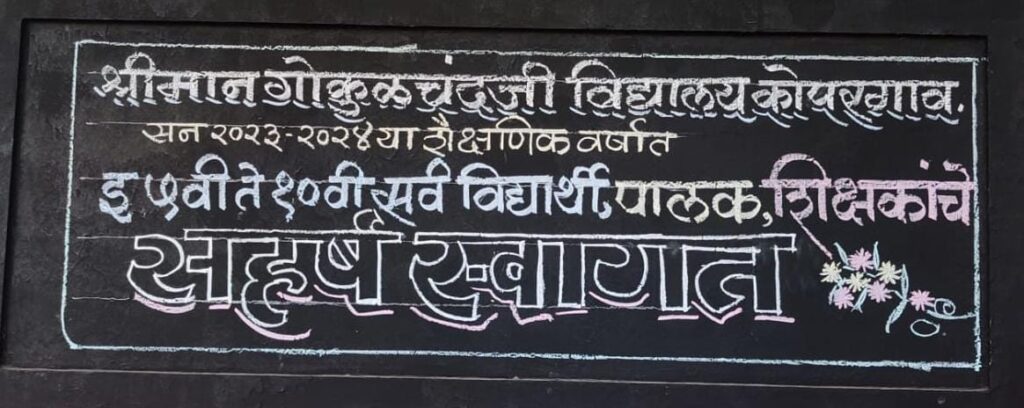 श्रीमान गोकुळचंदजी विद्यालय कोपरगाव.
सन २०२३-२०२४ या शैक्षणिक वर्षात
इ ५वी ते १०वी सर्व विद्यार्थी, पालक, शिक्षकांचे
सहर्ष स्वागत